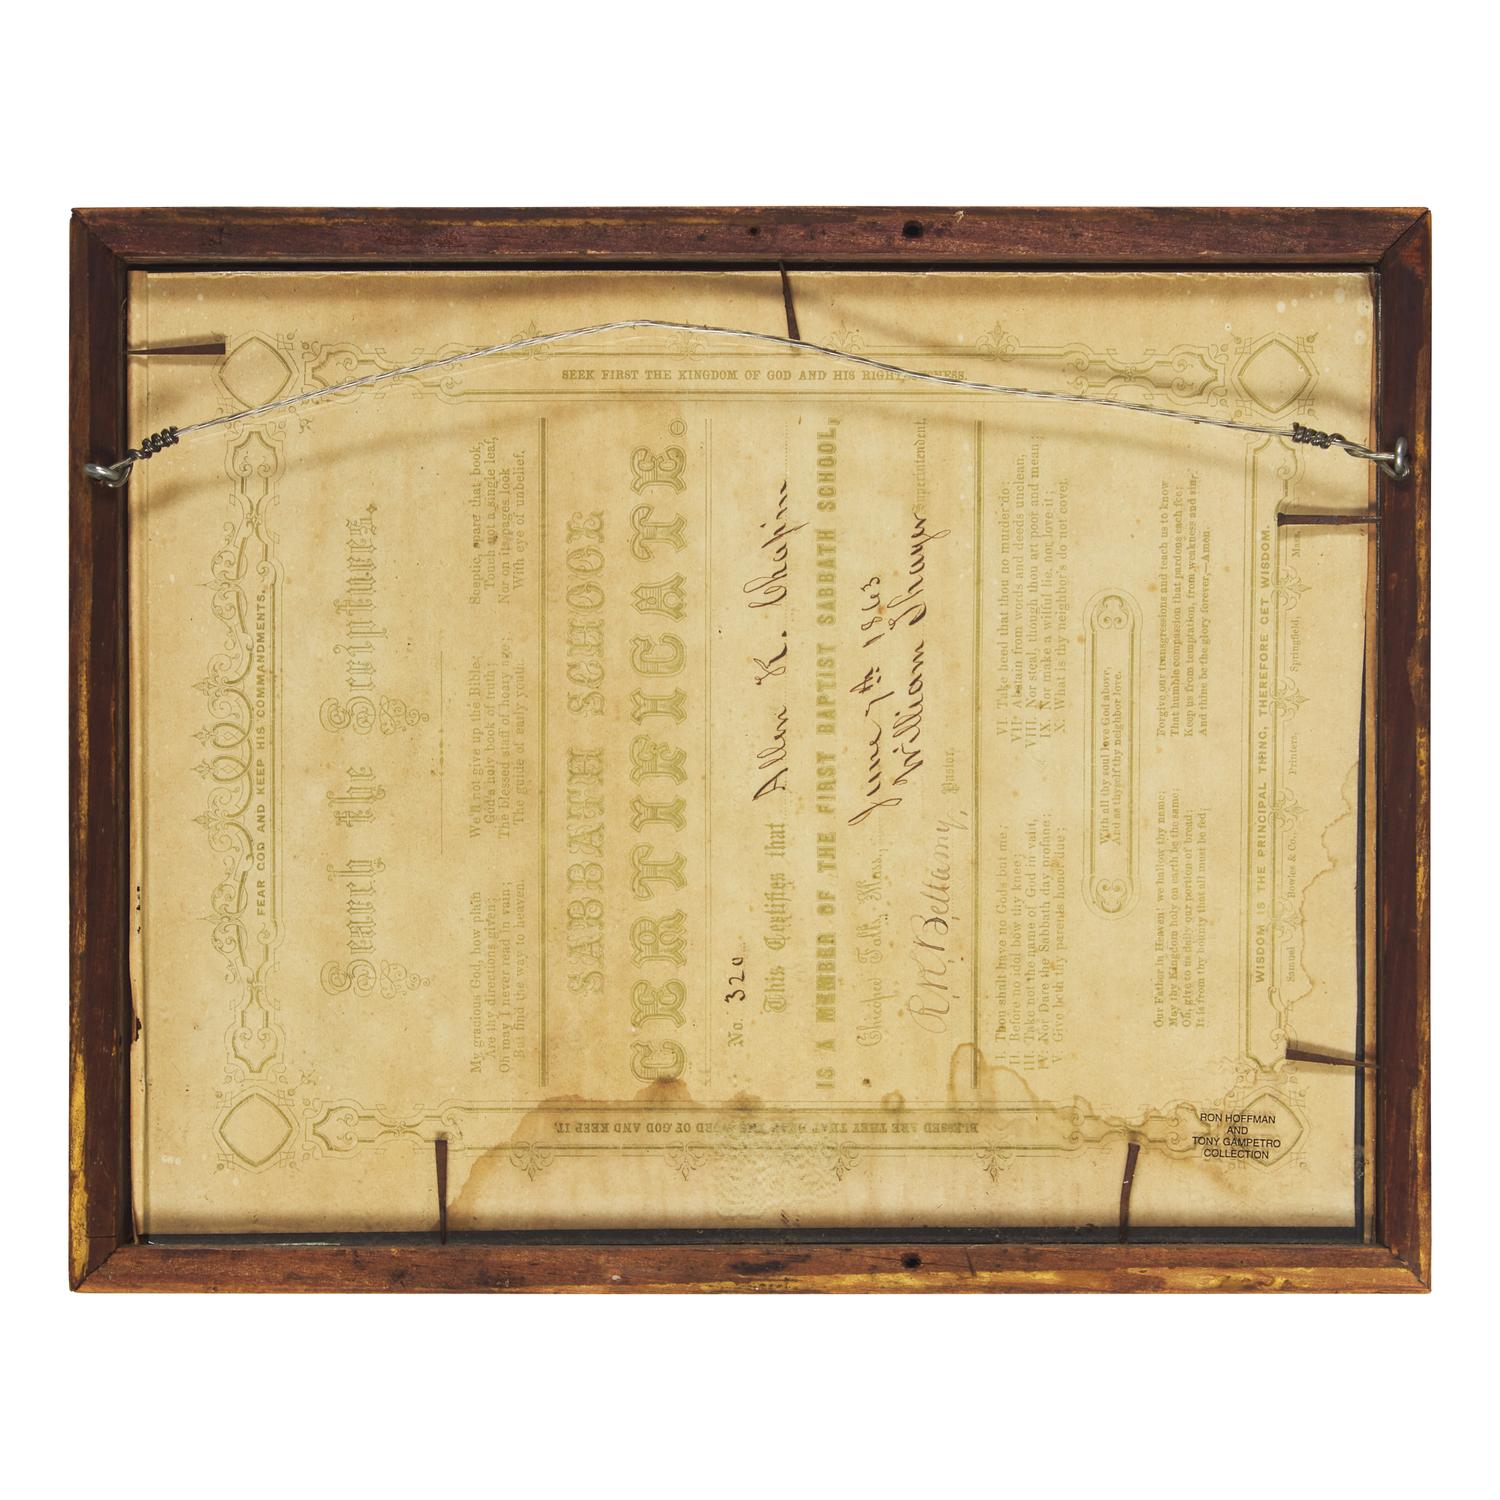 FEAR GOD AND KEEP HIS COMMANDMENTS.
Search the Scriptures.
My gracious God, how plain
Are thy directions given;
Oh may I never read in vain;
But find the way to heaven.
We'll not give up the Bible,
God's holy book of truth;
The blessed staff of hoary age
The guide of early youth.
Sceptic, spare that book,
Touch not a single leaf,
Nor on its pages look
With eye of unbelief.
SABBATH SCHOOL
CERTIFICATE.
No. 320
This Certifies that Allen K. Chapin
IS A MEMBER OF THE FIRST BAPTIST SABBATH SCHOOL,
Chicopee Falls, Mass., June 7th 1863
William Thayer Superintendent.
R. K. Bellamy, Pastor.
I. Thou shalt have no Gods but me;
II. Before no idol bow thy knee;
III. Take not the name of God in vain,
IV. Nor Dare the Sabbath day profane;
V. Give both thy parents honor due;
VI. Take heed that thou no murder do;
VII. Abstain from words and deeds unclean,
VIII. Nor steal, though thou art poor and mean;
IX. Nor make a wilful lie, nor love it;
X. What is thy neighbor's do not covet.
With all thy soul love God above,
And as thyself thy neighbor love.
Our Father in Heaven! we hallow thy name;
May thy Kingdom holy on earth be the same;
Oh, give to us daily our portion of bread;
It is from thy bounty that all must be fed;
Forgive our transgressions and teach us to know
That humble compassion that pardons each foe;
Keep us from temptation, from weakness and sin,
And thine be the glory forever,—Amen.
WISDOM IS THE PRINCIPAL THING, THEREFORE GET WISDOM.
Samuel Bowles & Co., Printers, Springfield, Mass.
SEEK FIRST THE KINGDOM OF GOD AND HIS RIGHTEOUSNESS.
BLESSED ARE THEY THAT HEAR THE WORD OF GOD AND KEEP IT.
RON HOFFMAN
AND
TONY GAMPETRO
COLLECTION